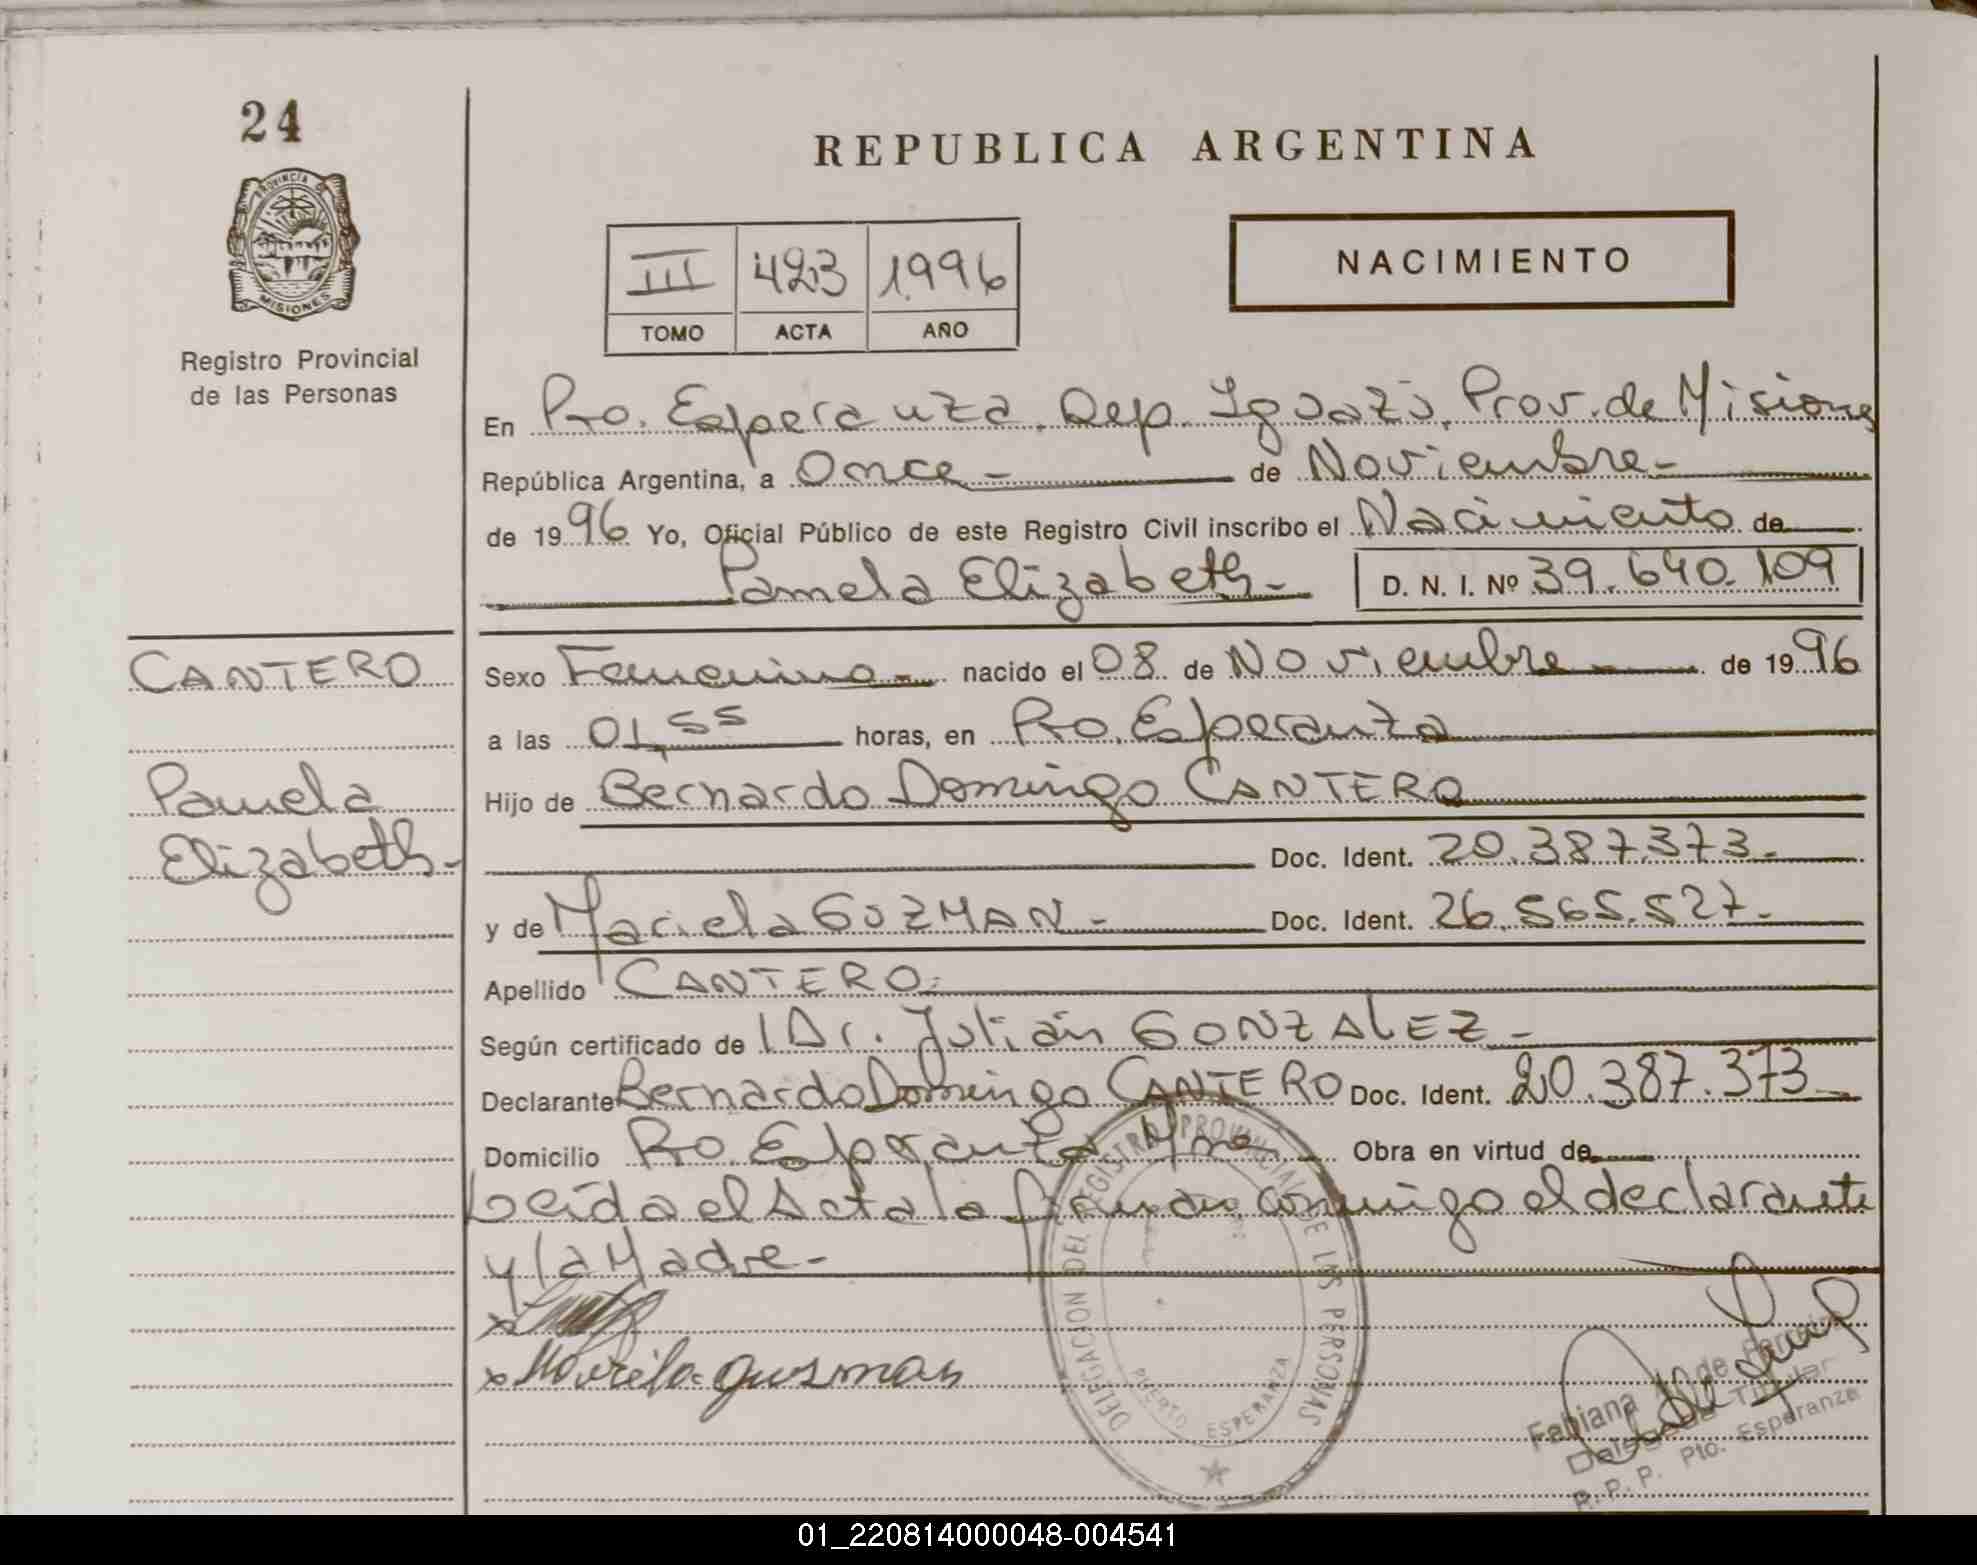 24
REPUBLICA ARGENTINA
PROVINCIA DE
MISIONES
Registro Provincial
de las Personas
NACIMIENTO
III 423 1996
TOMO ACTA AÑO
En Pto. Esperanza. Dep. Iguazú. Prov. de Misiones
República Argentina, a Once - de Noviembre -
de 1996 Yo, Oficial Público de este Registro Civil inscribo el Nacimiento de
Pamela Elizabeth - D. N. I. Nº 39.640.109
CANTERO
Pamela
Elizabeth -
Sexo Femenino - nacido el 08 de Noviembre de 1996
a las 01,55 horas, en Pto. Esperanza
Hijo de Bernardo Domingo CANTERO
Doc. Ident. 20.387.373 -
y de Mariela GUZMAN - Doc. Ident. 26.565.527 -
Apellido CANTERO.
Según certificado de Dr. Julián GONZALEZ -
Declarante Bernardo Domingo CANTERO Doc. Ident. 20.387.373 -
Domicilio Pto. Esperanza Mnes Obra en virtud de
Leida el Acta la firman conmigo el declarante
y la Madre -
x Mariela guzman
DELEGACION DEL REGISTRO PROVINCIAL DE LAS PERSONAS
PUERTO ESPERANZA
Fabiana de
Delegada Titular
R. P. P. Pto. Esperanza
01_220814000048-004541